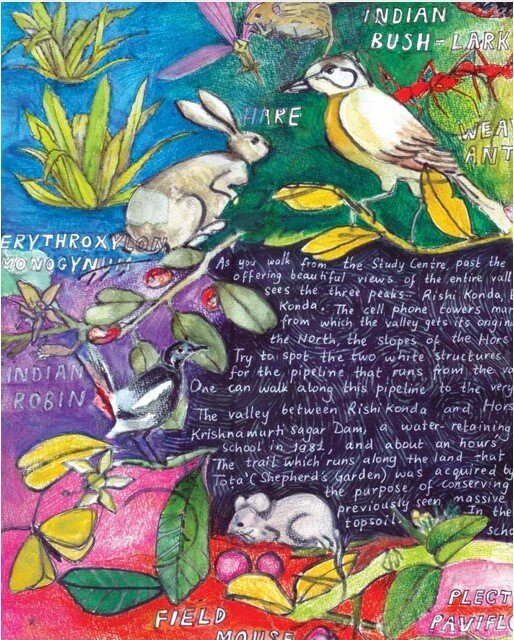 INDIAN
BUSH-LARK
HARE
WEA
ANT
ERYTHROXYLON
MONOGYNUM
As you walk from the Study Centre, past the
offering beautiful views of the entire vall
sees the three peaks - Rishi Konda,
Konda. The cell phone towers mar
from which the valley gets its origina
the North, the slopes of the Hors
Try to spot the two white structures
for the pipeline that runs from the va
One can walk along this pipeline to the very
The valley between Rishi Konda and Hors
Krishnamurti sagar Dam, a water-retaining
School in 1981, and about an hours'
The trail which runs along the land that
Tota (Shepherd's garden) was acquired by
the purpose of conserving
previously seen massive
topsoil. In the
scho
INDIAN
ROBIN
FIELD
MOUSE
PLECT
PAVIFLO